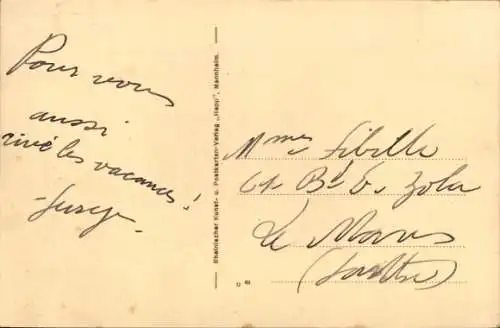 Pour vous
aussi
vive les vacances!
Rheinischer Kunst- u. Postkarten-Verlag „Hepp“, Mannheim.
Mmes Sibille
61 Bd E. Zola
Le Mans
(Sarthe)